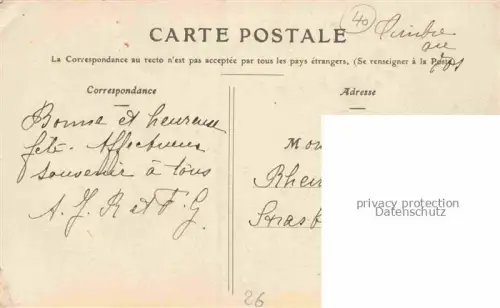 40
Timbre
au
CARTE POSTALE
La Correspondance au recto n'est pas acceptée par tous les pays étrangers, (Se renseigner à la Poste).
Correspondance
Adresse
Bonne et heureuse
fête. Affectueux
souvenir à tous
A. J. R et F. G
Mon
Rhen
Strasb
privacy protection
Datenschutz
26